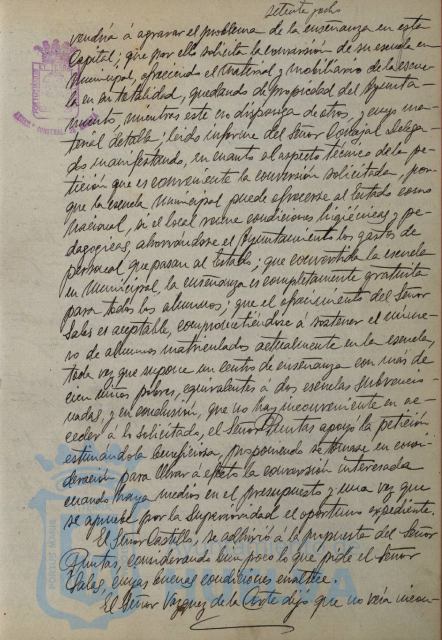 setenta y ocho
vendría á agravar el problema de la enseñanza en esta
Capital; que por ello solicita la conversión de su escuela en
Municipal, ofreciendo el material y mobiliario de la escue-
la en su totalidad, quedando de propiedad del Ayunta-
miento, mientras este no disponga de otros, y cuyo ma-
terial detalla; leido informe del Señor Concejal Delega-
do manifestando, en cuanto al aspecto técnico de la pe-
tición que es conveniente la conversión solicitada, por-
que la escuela Municipal puede ofrecerse al Estado como
Nacional, si el local reune condiciones higiénicas y pe-
dagógicas, ahorrandose el Ayuntamiento los gastos de
personal, que pasan al Estado; que convertida la escuela
en Municipal, la enseñanza es completamente gratuita
para todos los alumnos; que el ofrecimiento del Señor
Salas es aceptable, comprometiéndose á sostener el núme-
ro de alumnos matriculados actualmente en la escuela,
toda vez que supone un centro de enseñanza con más de
cien niños pobres, equivalentes á dos escuelas subvencio-
nadas, y en conclusión, que no hay inconveniente en ac-
ceder á lo solicitado, el Señor Puntas apoyó la petición
estimandola beneficiosa, proponiendo se tomase en consi-
deración para llevar á efecto la conversión interesada
cuando haya medios en el presupuesto y una vez que
se apruebe por la Superioridad el oportuno expediente.
El Señor Castilla, se adhirió á la propuesta del Señor
Puntas, considerando bien poco lo que pide el Señor
Salas, cuyas buenas condiciones enaltece.
El Señor Vazquez de la Corte dijo que no veía incon-
PORTUS MARIS
HUELVA